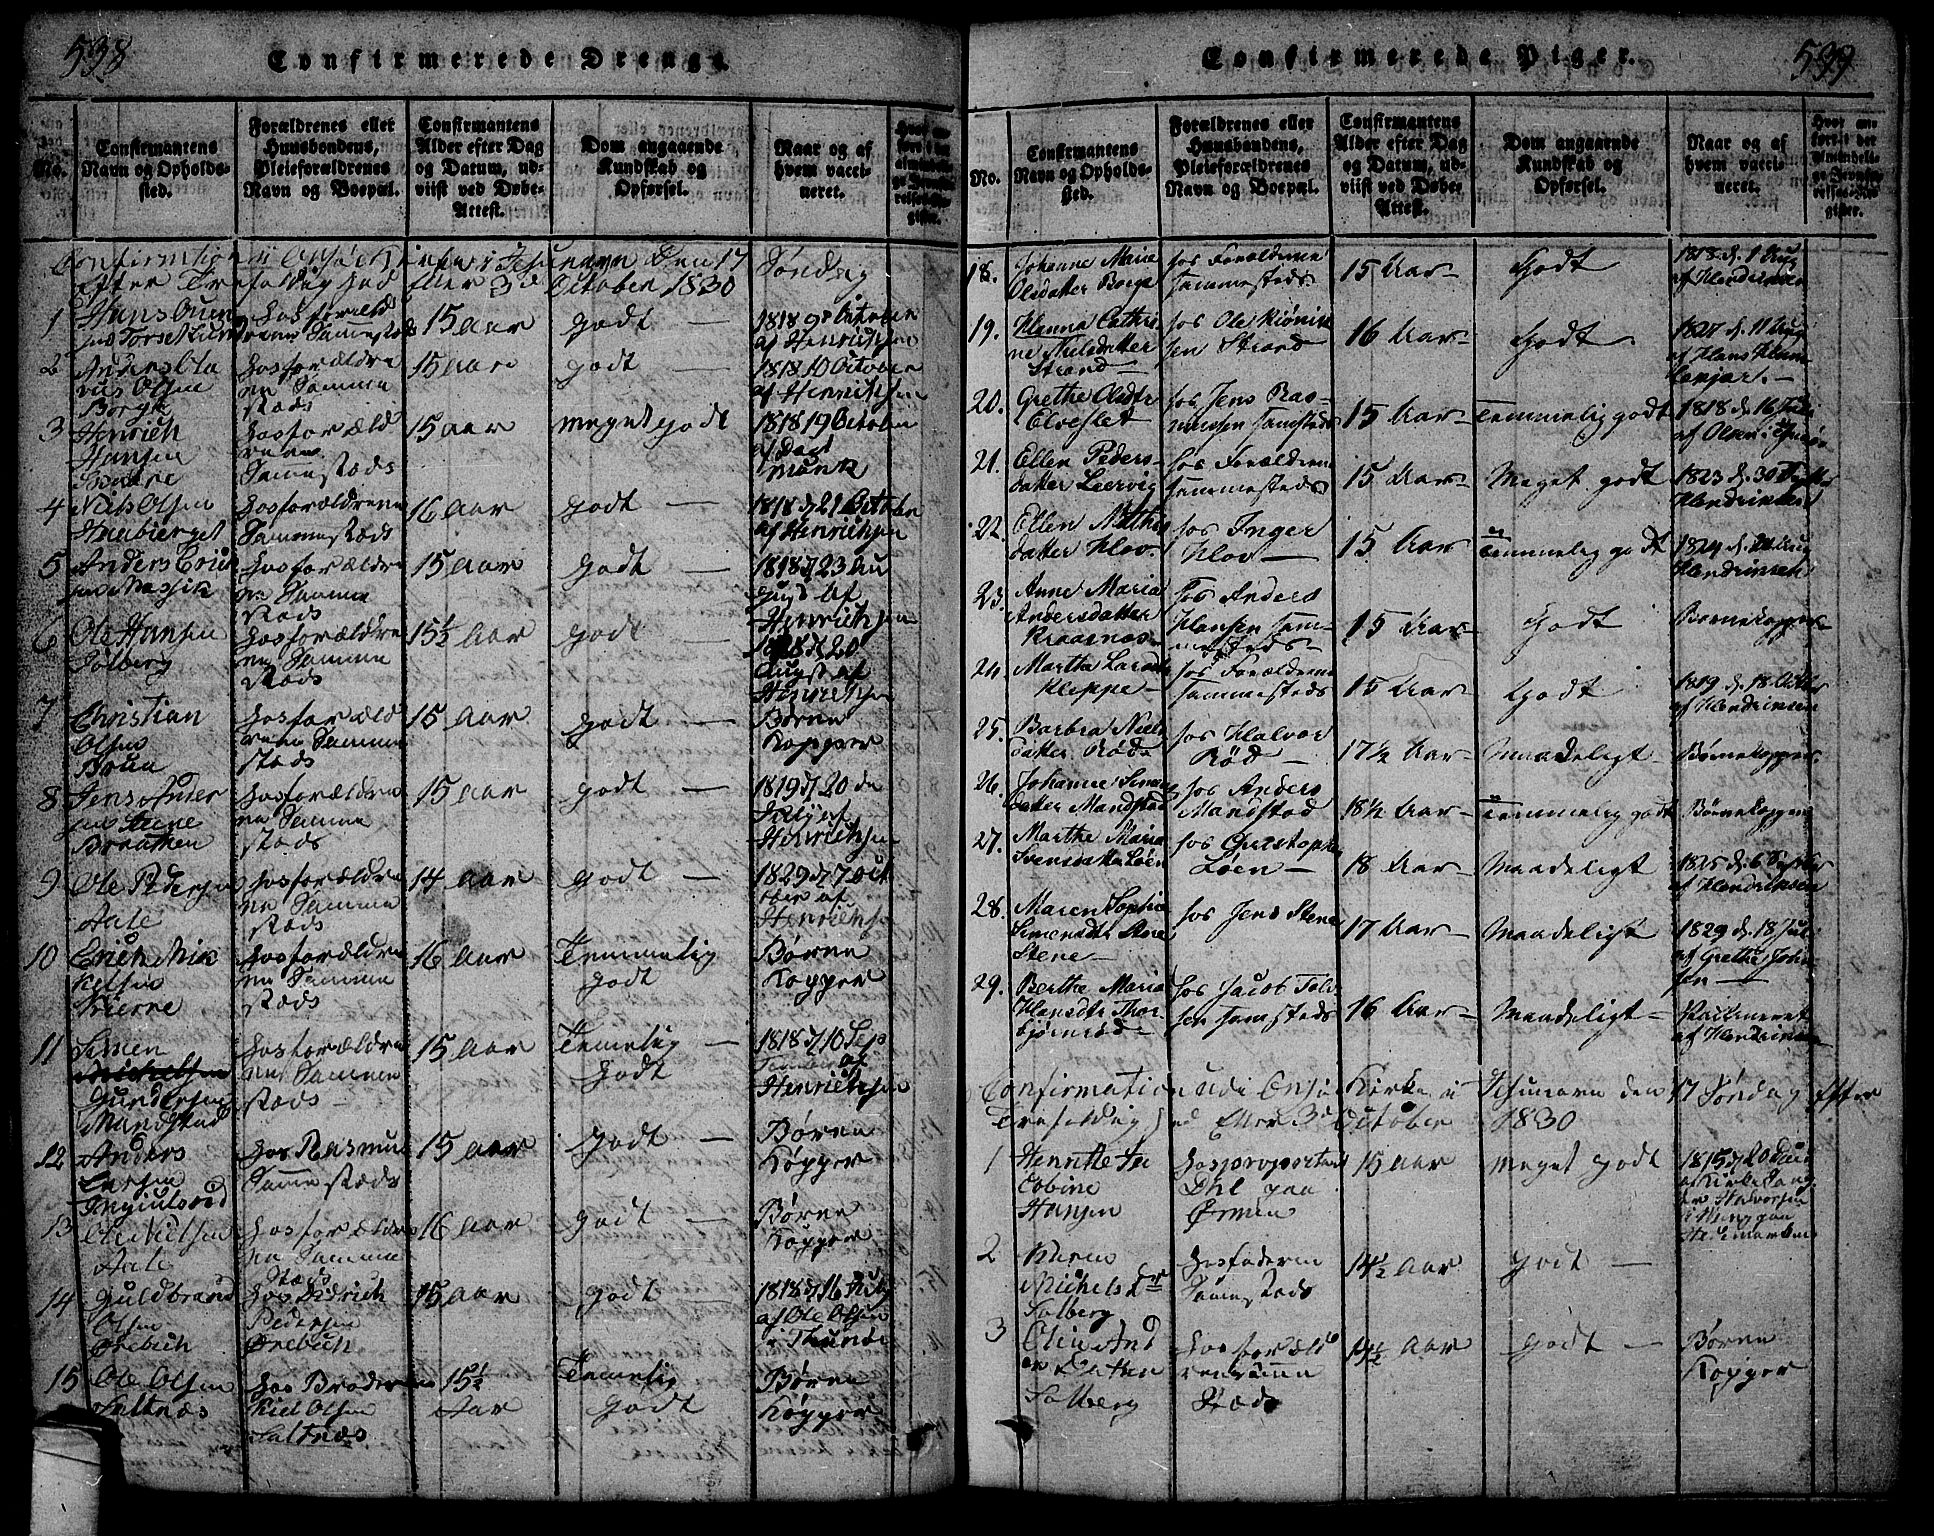 538
Confirmerede Drenge.
No.
Confirmantens
Navn og Opholds-
sted.
Forældrenes eller
Huusbondens,
Pleieforældrenes
Navn og Boepæl.
Confirmantens
Alder efter Dag
og Datum, ud-
viist ved Døbe-
Attest.
Dom angaaende
Kundskab og
Opførsel.
Naar og af
hvem vacci-
neret.
Confirmation i Onsøe Kirke i Jesu navn Den 17 Søndag
efter Trefoldighed eller 3d October 1830
1
15 Aar
godt —
1818 9 October
af Henrichsen
2
Anders Ola
vus Olsen
Borge
hos forældre
ne Samme
stæds
15 Aar
godt —
1818 10 October
af Henrichsen
3
Henrich
Hansen
hos foræld
rene
Samme stæds
15 Aar
meget godt
1818 19 October
af Dagl
4
Niels Olsen
Haubierget
hos forældrene
Sammestæds
16 Aar
godt —
1818 d 21 October
af Henrichsen
5
Anders Erich
sen
hos forældre
ne Samme
stæds
15 Aar
godt —
1818 d 23 Au
gust af
Henrichsen
6
Ole Hansen
Solberg
hos forældre
ne Samme
stæds
15½ Aar
godt —
August af
Henrichsen
7
Christian
Olsen
Bruu
hos foræld
rene Samme
stæds
15 Aar
godt —
Børne
Kopper
8
Jens Ander
sen
Braathen
hos forældre
ne Samme
stæds
15 Aar
godt —
1819 d 20 de
Henrichsen
9
Ole Pedersen
Aale
hos forældre
ne Samme
stæds
14 Aar
godt —
1829 d 7 Oct
ober af
Henrichsen
10
Erich Mik
kelsen
hos forældre
ne Samme
stæds
16 Aar
Temmelig
godt
Børne
Kopper
11
Simen
Gundersen
Mandstad
hos forældre
ne Samme
stæds —
15 Aar
Temelig —
godt
1818 d 16 Sep
Henrichsen
12
Anders
Larsen
hos Rasmus
Samme stæds
15 Aar
godt —
Børne
Kopper
13
Ole Nielsen
Aale
hos forældre
ne Samme
stæds
16 Aar
godt —
Børne
Kopper
14
Guldbrand
Olsen
Ørebech
hos Didrich
Pedersen
Ørebech
15 Aar
godt —
1818 d 16 July
af Ole Olsen
i Thunøe
15
Ole Olsen
Saltnæs
hos Broderen
Niel Olsen
Saltnæs
15½
Aar
Temelig
godt
Børne
Kopper
539
Confirmerede Piger.
No.
Confirmantens
Navn og Opholds-
sted.
Forældrenes eller
Huusbondens,
Pleieforældrenes
Navn og Boepæl.
Confirmantens
Alder efter Dag
og Datum, ud-
viist ved Døbe-
Attest.
Dom angaaende
Kundskab og
Opførsel.
Naar og af
hvem vacci-
neret.
Hvor an-
ført i det
almindeli-
ge Jevnfø-
relses-Re-
gister.
18.
Johanne Marie
Olsdatter Borge
hos Forældrene
sammesteds
15 Aar —
Godt
1818 d. 1 Aug
af Hendrinsen
19.
Hanna Cathri
ne Nielsdatter
Strand —
hos Ole Kiönik
sen Strand
16 Aar —
Godt
1827 d. 11 Aug
af Hans
20.
Grethe Olsdtr
Elveslet
hos Jens Ras-
mussen samsteds
15 Aar —
Temmelig godt
1818 d. 16 Juli
af Olsen i
21.
Ellen Peders-
datter Leervig
hos Forældrene
sammesteds
15 Aar —
Meget godt
1823 d. 30
Hendrinsen
22.
Ellen Mathis
datter Klov.
hos Inger
Klov —
15 Aar —
Temmelig godt
1824 d. Aug
Hendrinsen
23.
Anne Maria
Andersdatter
Kraagnæs —
hos Anders
Hansen sam-
mesteds —
15 Aar —
Godt
Børnekopper
24.
Martha Larsd
Kleppe —
hos Forældrene
sammesteds
15 Aar —
Godt
1819 d. 18 Octbr
af Hendrinsen
25.
Barbra Niels
datter Røds
hos Halvor
Rød —
17½ Aar —
Maadeligt —
Børnekopper.
26.
Johanne Simens
datter Mandstad
hos Anders
Mandstad
18½ Aar —
Temmelig godt
Børnekopper
27.
Marthe Maria
Svensdatter Løen
hos Christopher
Løen —
18 Aar —
Maadeligt
1825 d. 6 Septbr
af Hendrinsen
28.
Maren Sophie
Simensdtr
Stene —
hos Jens Stene
17 Aar —
Maadeligt
1829 d. 18 Juli
af Grethe John
sen —
29.
Berthe Maria
Hansdtr Thor-
bjørnrød —
hos Jacob Tol-
sen samsteds
16 Aar —
Maadeligt —
Vaccineret
af Hendrinsen
Confirmation udi Onsøe Kirke i Jesu navn den 17 Søndag efter
Trefoldighed Eller 3d October 1830
1
Henrette Ja
cobine
Hansen
hos proportær
Dhl paa
Ørmen
15 Aar
meget godt
1815 d 20 Juni
af Kirkesang
er Halvorsen
Hedemarken
2
Karen
Michelsdr
Solberg
hos faderen
Sammestæds
14½ Aar
godt —
3
Olea And
ers Datter
Solberg
hos foræld
rene Samme
Stæds
14½ Aar
godt —
Børne
Kopper